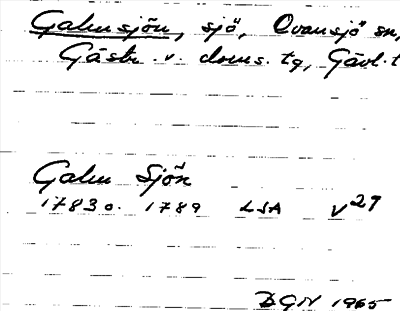 Galmsjön, sjö, Ovansjö sn,
Gästr. v. doms. tg, Gävl. l
Galm Sjön
1783 o. 1789 LSA V27
DGN 1965